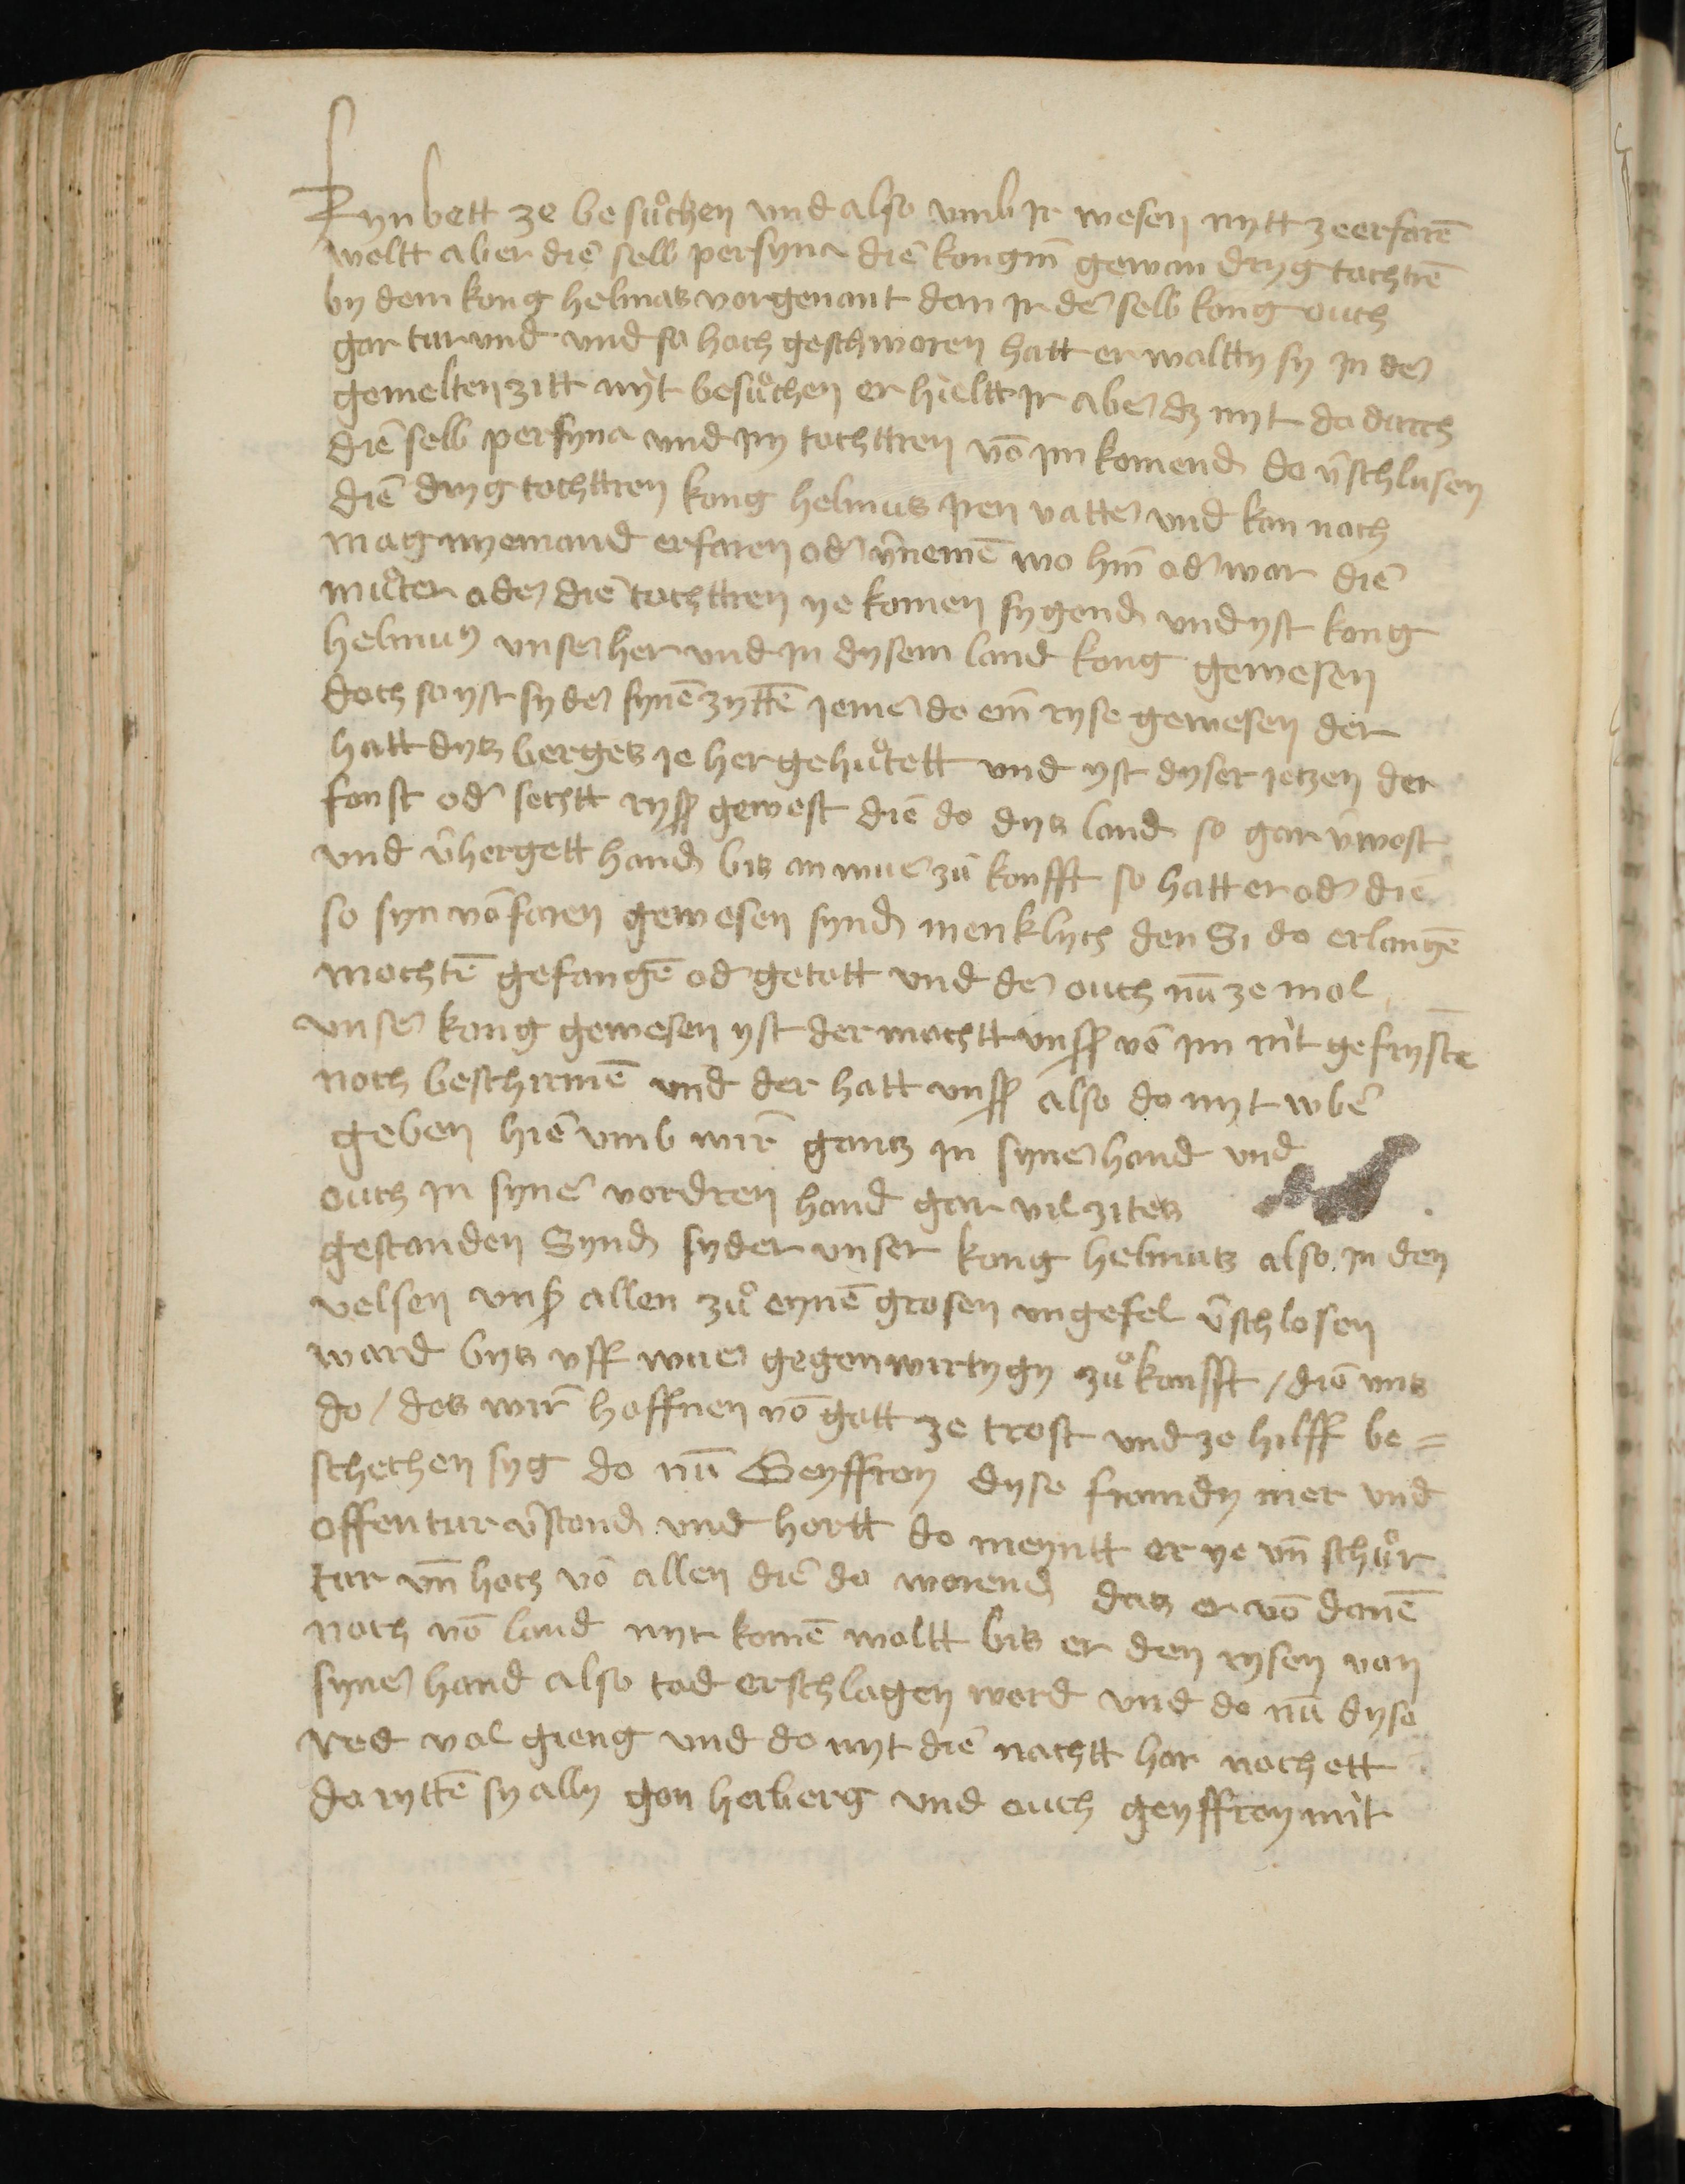 kynbett ze besuͦchen und also vmb ir wesen nytt ze erfarē
woltt aber diē selb persyna diē kongīn gewan dryg tochtrē
by dem kong helmas vorgenant dan ir dē selb kong ouch
gar tur vnd vnd so hoch geschworen hatt er woltty sy in deꝛ
gemelten zitt nẏt besuͦchen er hieltt ir abeꝛ dz nyt do durch
diē selb persyna vnd iry tochttren vō im komend do v̄schlusen
diē dryg tochttren kong helmas iren vatteꝛ vnd kan noch
mag nyemand erfaren odꝛ v̄nemē wo hīn odꝛ war diē
muͦter odeꝛ diē tochttren ye komen sygend vnd yst kong
helmas vnseꝛ her vnd in dysem land kong gewesen
doch so yst sydeꝛ synē zyttē iemeꝛ do eīn ryse gewesen der
hatt dys berges ie her gehuͦtett vnd yst dyser ietzen der
fonst odꝛ sechtt ryss gewest diē do dys land so gar v̄wost
vnd v̄hergett hand bis an wueꝛ zuͦ konfft so hatt er odꝛ diē
so syn vōfaren gewesen synd menklych den Si do erlangē
mochtē gefangē odꝛ getott vnd deꝛ ouch nū ze mol
vnseꝛ kong gewesen yst der mochtt vnss vō im nit gefrystē
noch beschirmē vnd der hatt vnss also do nyt wbeꝛ
geben hiē vmb wir̄ gantz in syneꝛ hand vnd
ouch in syneꝛ vordren hand gar vil zites
gestanden Synd syder vnser kong helmas also in den
velsen vns allen zuͦ eynē grosen vngefel v̄schlosen
ward bys vff wueꝛ gegenwirtygy zuͦkonfft / diē vns
do / des wir̄ hoffnen vō gott ze trost vnd ze hilff be=
schechen syg do nū Geyffroy dyse fromdy mer vnd
offentur v̄stond vnd hortt do meyntt er ye vn̄ schuͦr
tur vn̄ hoch vō allen diē do worend das er vō danē
noch vō land nyt komē woltt bis er den rysen von
syneꝛ hand also tod erschlagen word vnd do nū dyse
red vol gieng vnd do nyt diē nachtt har nochett
do ryttē sy ally gon herberg vnd ouch geyffroy mit